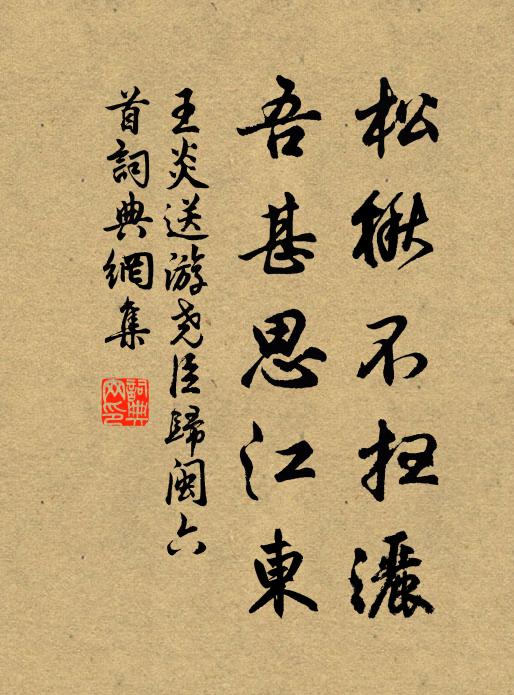 松楸不扫灑
吾甚思江東
王炎送游尧臣歸閩六
首詞典網集
詞典
网印